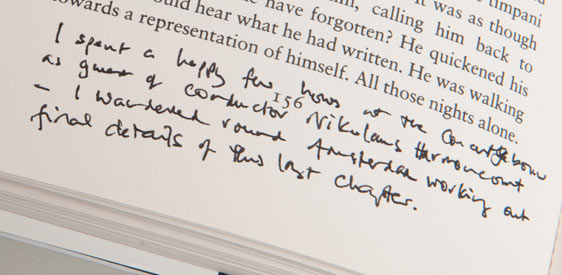 timpani
it was as though
him, calling him back to
have forgotten? He quickened his
could hear what he had written. He was walking
towards a representation of himself. All those nights alone.
156
I spent a happy few hours at the Concertgebouw
as guest of conductor Nikolaus Harnoncourt
– I wandered round Amsterdam working out
final details of this last chapter.